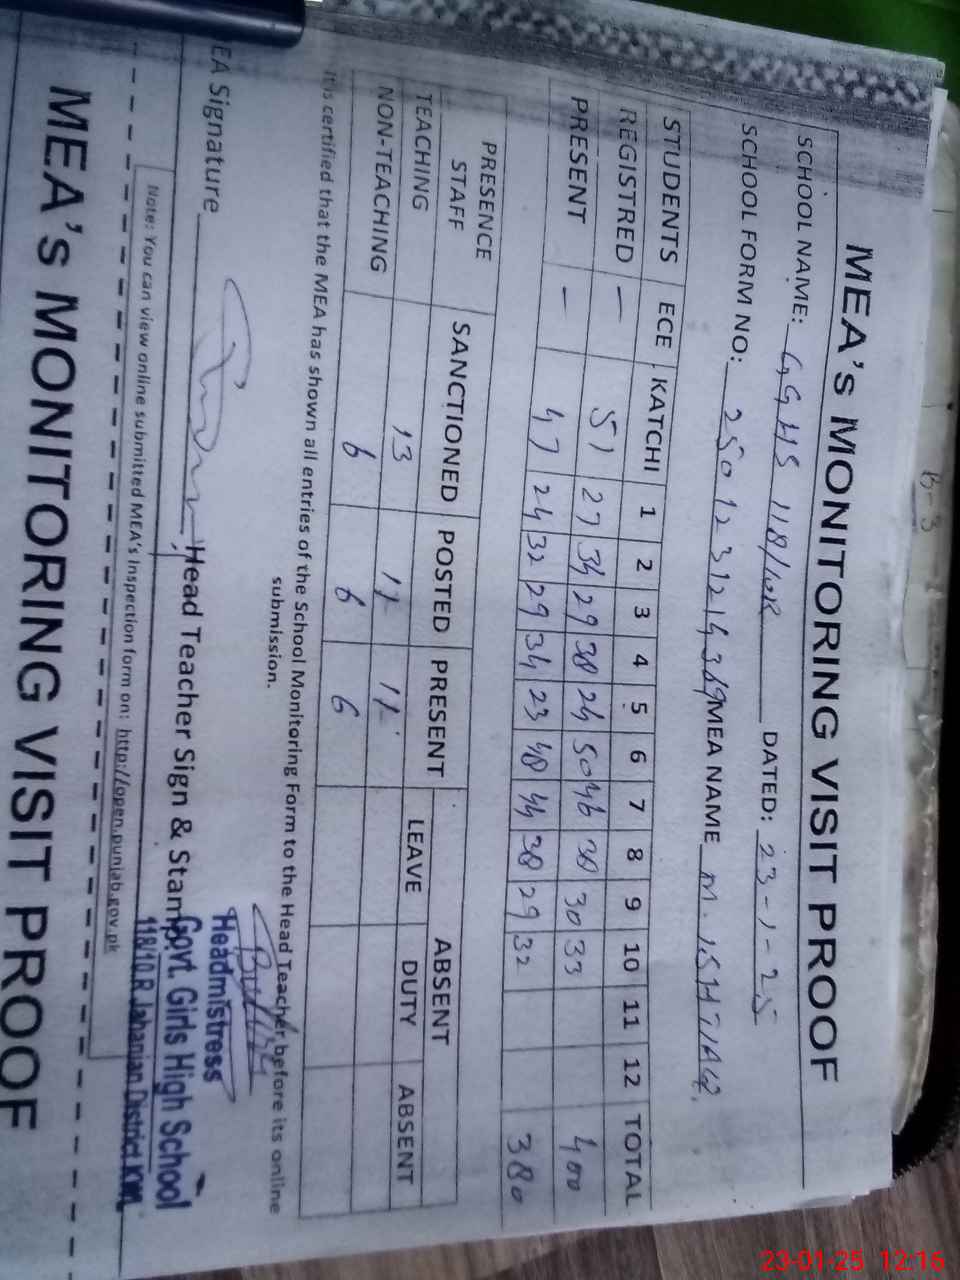 B-3
MEA's MONITORING VISIT PROOF
SCHOOL NAME: GGHS 118/10R DATED: 23-1-25
SCHOOL FORM NO: MEA NAME M. ISHTIAQ
STUDENTS ECE KATCHI 1 2 3 4 5 6 7 8 9 10 11 12 TOTAL
REGISTRED — 51 27 34 29 38 24 50 46 38 30 33 400
PRESENT — 47 24 32 29 34 23 48 44 38 29 32 380
PRESENCE STAFF SANCTIONED POSTED PRESENT ABSENT
LEAVE DUTY ABSENT
TEACHING 13
NON-TEACHING 6 6 6
It is certified that the MEA has shown all entries of the School Monitoring Form to the Head Teacher before its online
submission.
EA Signature Head Teacher Sign & Stamp:
Headmistress
Govt. Girls High School
118/10.R Jahanian District KWL
Note: You can view online submitted MEA's Inspection form on: http://open.punjab.gov.pk
MEA's MONITORING VISIT PROOF
23-01-25 12:16